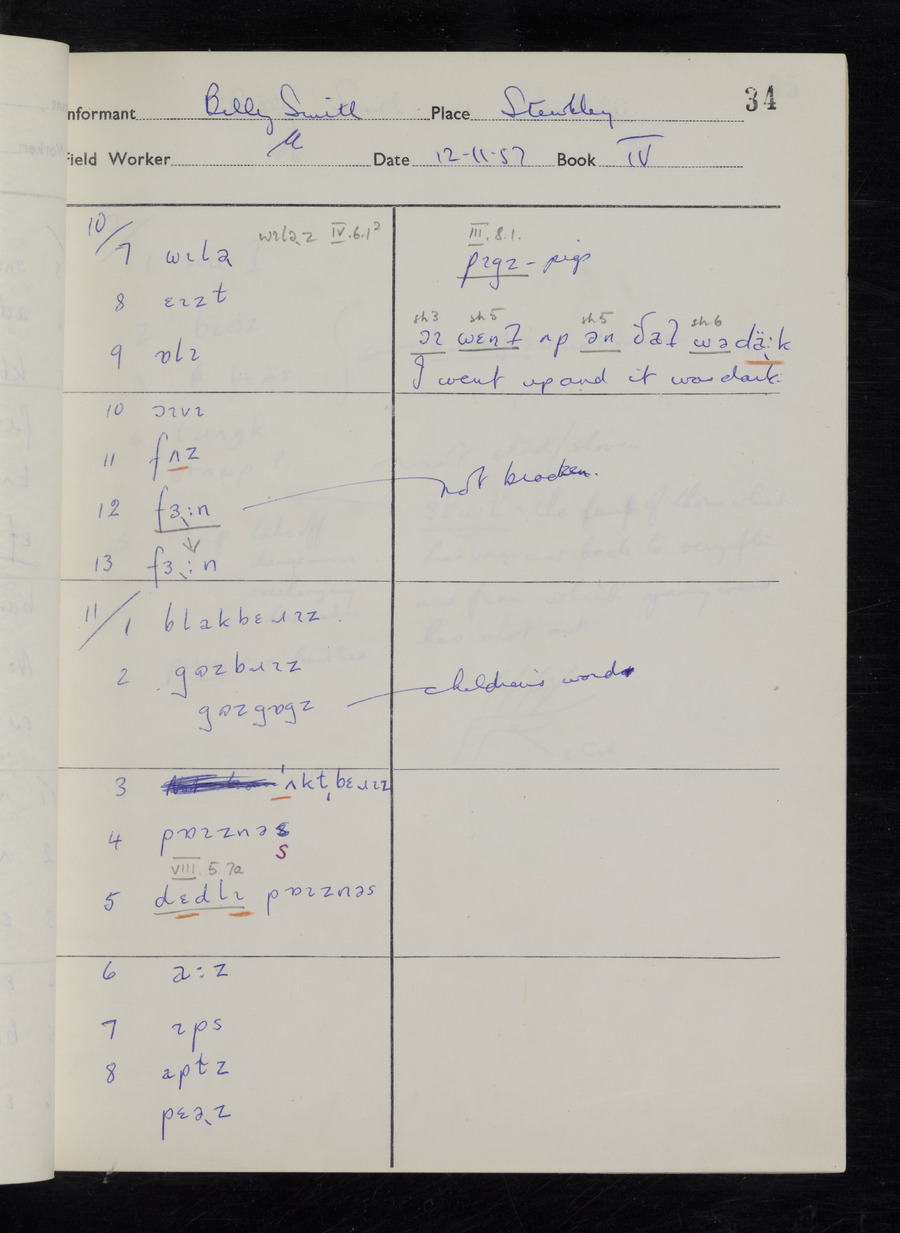 34
Informant Billy Smith Place Stewkley
Field Worker Date 12-11-57 Book IV
10/
7 wɪlə wɪləz IV.6.1²
8 ɛɪzt
9 ɒlɪ
10 ɔɪvɪ
11 fʌz
12 fɜ:n
13 fɜ:n
III.8.1.
pɪgz - pigs
sh3 sh5 sh5 sh6
ɔɪ wɛnʔ ʌp ən ðaʔ wə dä:k
I went up and it was dark.
not bracken.
11/
1 blakbɛɹɪz
2 gɒzbɹɪz
gɒzgɒgz
children's word
3 ʌktbɛɹɪz
4 pɒɪznəs
s
VIII.5.7a
5 dɛdlɪ pɒɪznəs
6 a:z
7 ɪps
8 aptz
pɛəz